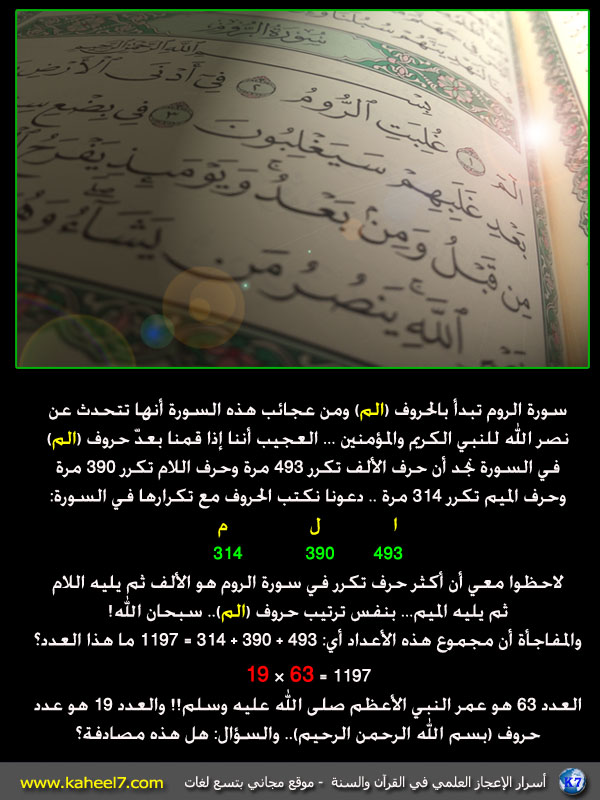 سورة الروم
بسم الله الرحمن الرحيم
الٓمٓ ١ غُلِبَتِ ٱلرُّومُ ٢ فِىٓ أَدْنَى ٱلْأَرْضِ
بَعْدِ غَلَبِهِمْ سَيَغْلِبُونَ ٣ فِى بِضْعِ
مِن قَبْلُ وَمِنۢ بَعْدُ ۚ وَيَوْمَئِذٍ يَفْرَحُ
ٱللَّهِ ۚ يَنصُرُ مَن يَشَآءُ ۖ وَهُوَ
سورة الروم تبدأ بالحروف (الم) ومن عجائب هذه السورة أنها تتحدث عن
نصر الله للنبي الكريم والمؤمنين ... العجيب أننا إذا قمنا بعدّ حروف (الم)
في السورة نجد أن حرف الألف تكرر 493 مرة وحرف اللام تكرر 390 مرة
وحرف الميم تكرر 314 مرة .. دعونا نكتب الحروف مع تكرارها في السورة:
ا ل م
493 390 314
لاحظوا معي أن أكثر حرف تكرر في سورة الروم هو الألف ثم يليه اللام
ثم يليه الميم... بنفس ترتيب حروف (الم).. سبحان الله!
والمفاجأة أن مجموع هذه الأعداد أي: 493 + 390 + 314 = 1197 ما هذا العدد؟
1197 = 63 × 19
العدد 63 هو عمر النبي الأعظم صلى الله عليه وسلم!! والعدد 19 هو عدد
حروف (بسم الله الرحمن الرحيم).. والسؤال: هل هذه مصادفة؟
K7 أسرار الإعجاز العلمي في القرآن والسنة - موقع مجاني بتسع لغات www.kaheel7.com